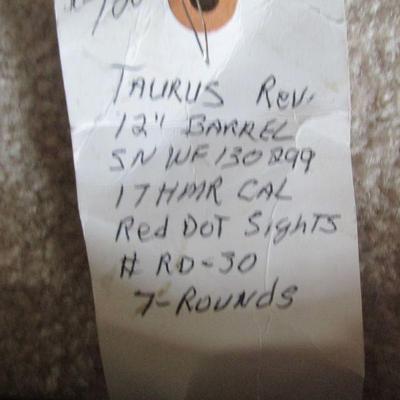 TAURUS Rev.
12" BARREL
SN WF 130899
17 HMR CAL
Red DOT SigHTS
# RD-30
7-ROUNDS